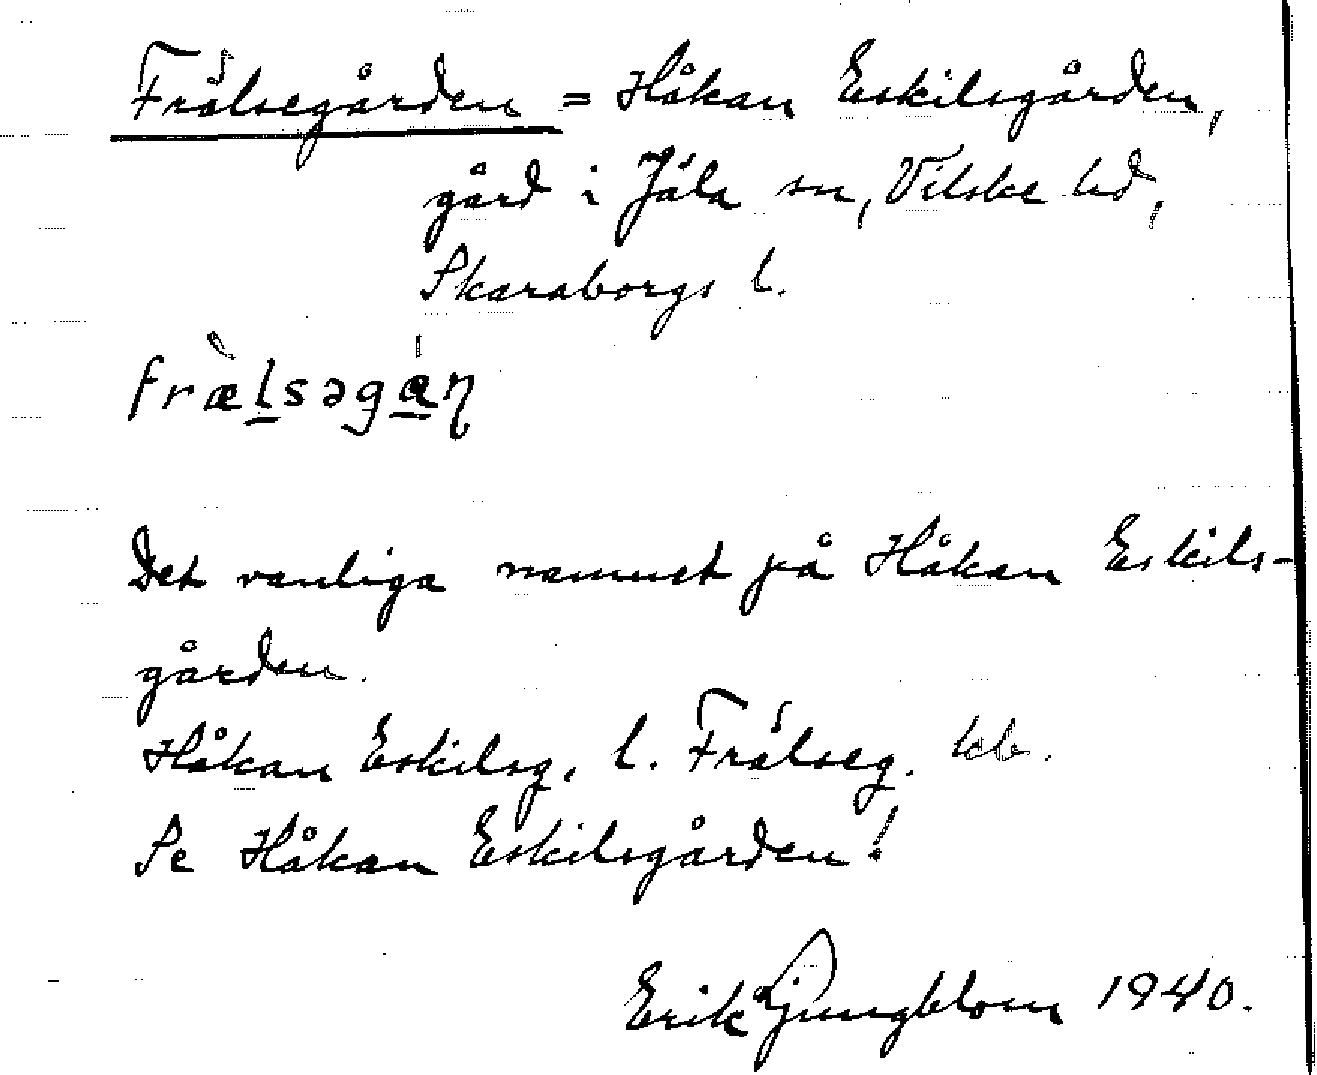 Frälsegården = Håkan Eskilsgården,
gård i Jäla sn, Vilske hd,
Skaraborgs l.
fræ̀lsəgáɳ
Det vanliga namnet på Håkan Eskils-
gården.
Håkan Eskilsg. l. Frälseg. kb.
Se Håkan Eskilsgården!
Erik Ljungblom 1940.